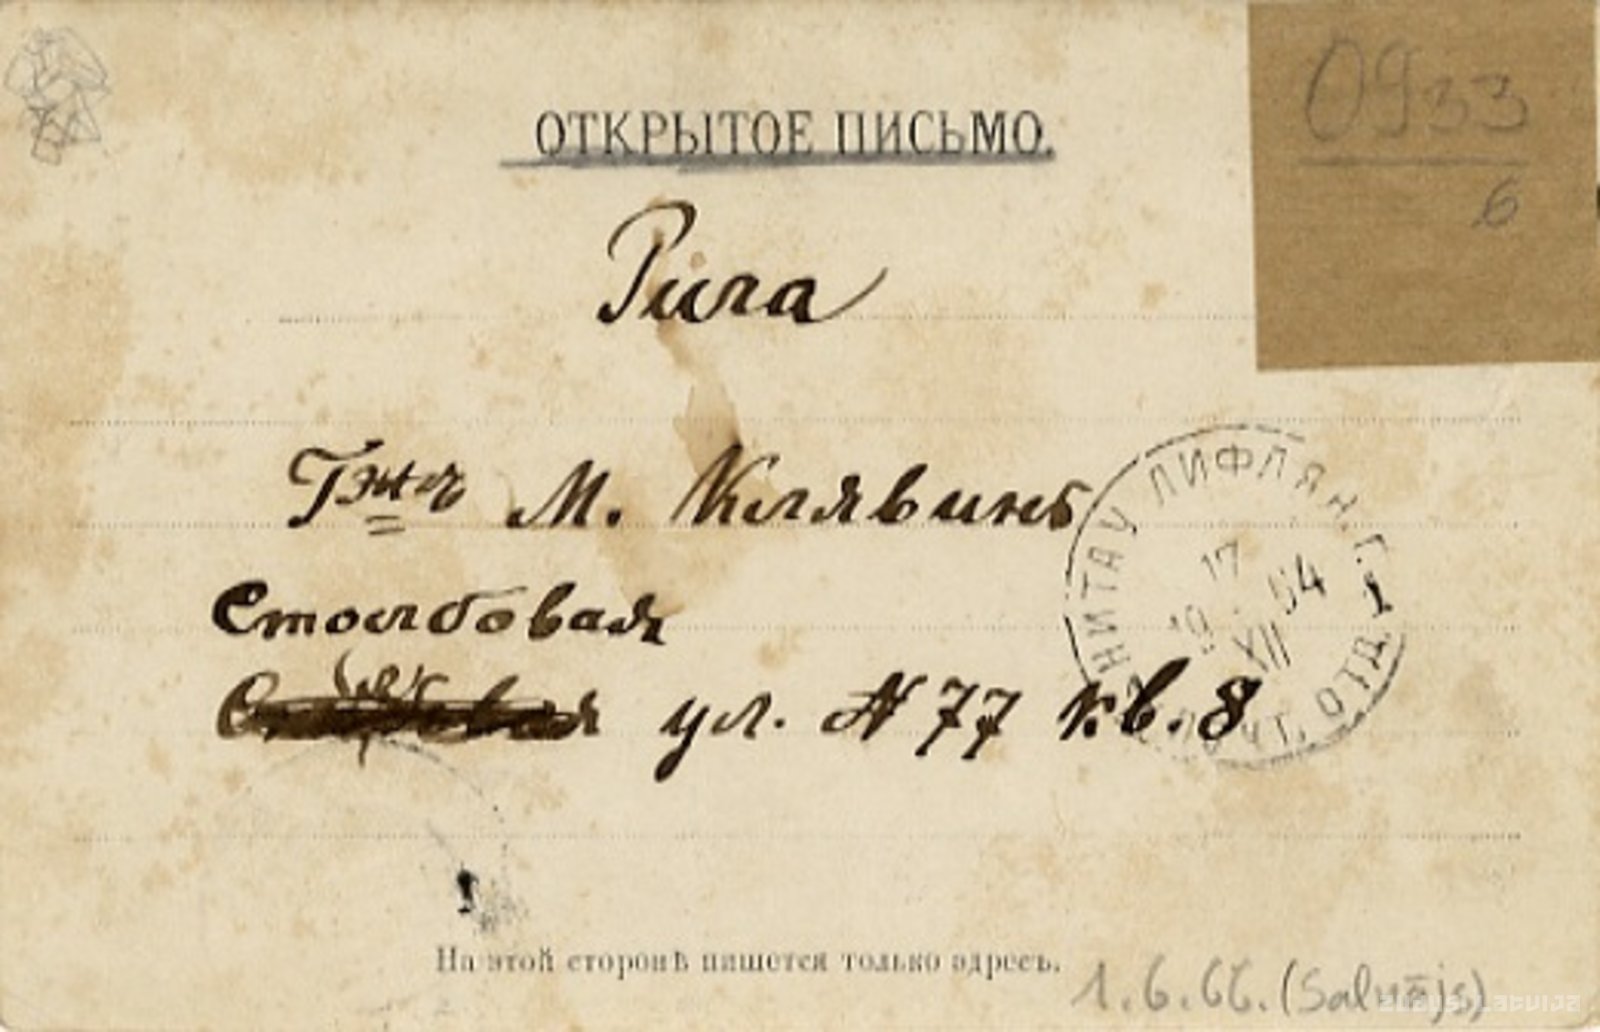 ОТКРЫТОЕ ПИСЬМО.
0933
6
Рига
М. Клявинъ
НИТАУ ЛИФЛЯН. Г.
17
19 XII 04
ПОЧТ. ОТД.
1
Столбовая
ул. № 77 кв. 8
На этой сторонѣ пишется только адресъ.
1.6.66.
zudusilatvija